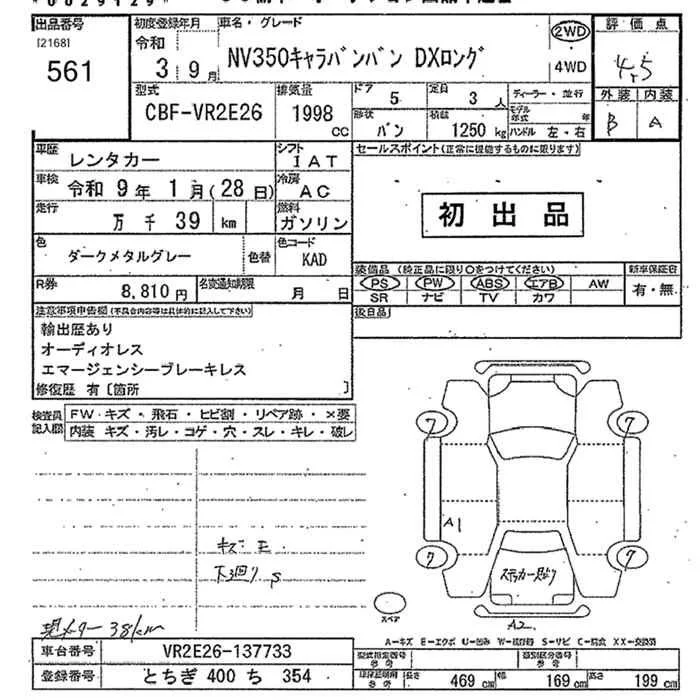 出品番号
[2168]
561
初度登録年月
令和
3年9月
車名・グレード
NV350キャラバンバン DXロング
2WD
4WD
評価点
4.5
外装 内装
B A
型式
CBF-VR2E26
排気量
1998
CC
ドア
5
定員
3人
形状
バン
積載
1250kg
ディーラー・並行
モデル年式 年
ハンドル 左・右
車歴
レンタカー
シフト
IAT
車検
令和 9年 1月(28日)
冷房
AC
走行
万 千 39 km
燃料
ガソリン
色
ダークメタルグレー
色替
色コード
KAD
R券
8,810円
名変通知期限
月 日
セールスポイント(正常に機能するものに限ります)
初出品
装備品 (純正品に限り○をつけてください)
PS PW ABS エアB AW
SR ナビ TV カワ
新車保証書
有・無
後日品
注意事項申告欄(不具合内容等は具体的に記入して下さい)
輸出歴あり
オーディオレス
エマージェンシーブレーキレス
修復歴 有〔箇所 〕
検査員記入欄
FW・キズ・飛石・ヒビ割・リペア跡・×要
内装 キズ・汚レ・コゲ・穴・スレ・キレ・破レ
キズ E
下廻り S
現メーター 38km
7
7
A1
7
7
ステッカー跡り
スペア
A2
A=キズ E=エクボ U=凹み W=補修跡 S=サビ C=腐食 XX=交換済
車台番号
VR2E26-137733
登録番号
とちぎ 400 ち 354
型式指定番号
参考
類別区分番号
参考
車検証明用
参考
長さ
469 cm
幅
169 cm
高さ
199 cm